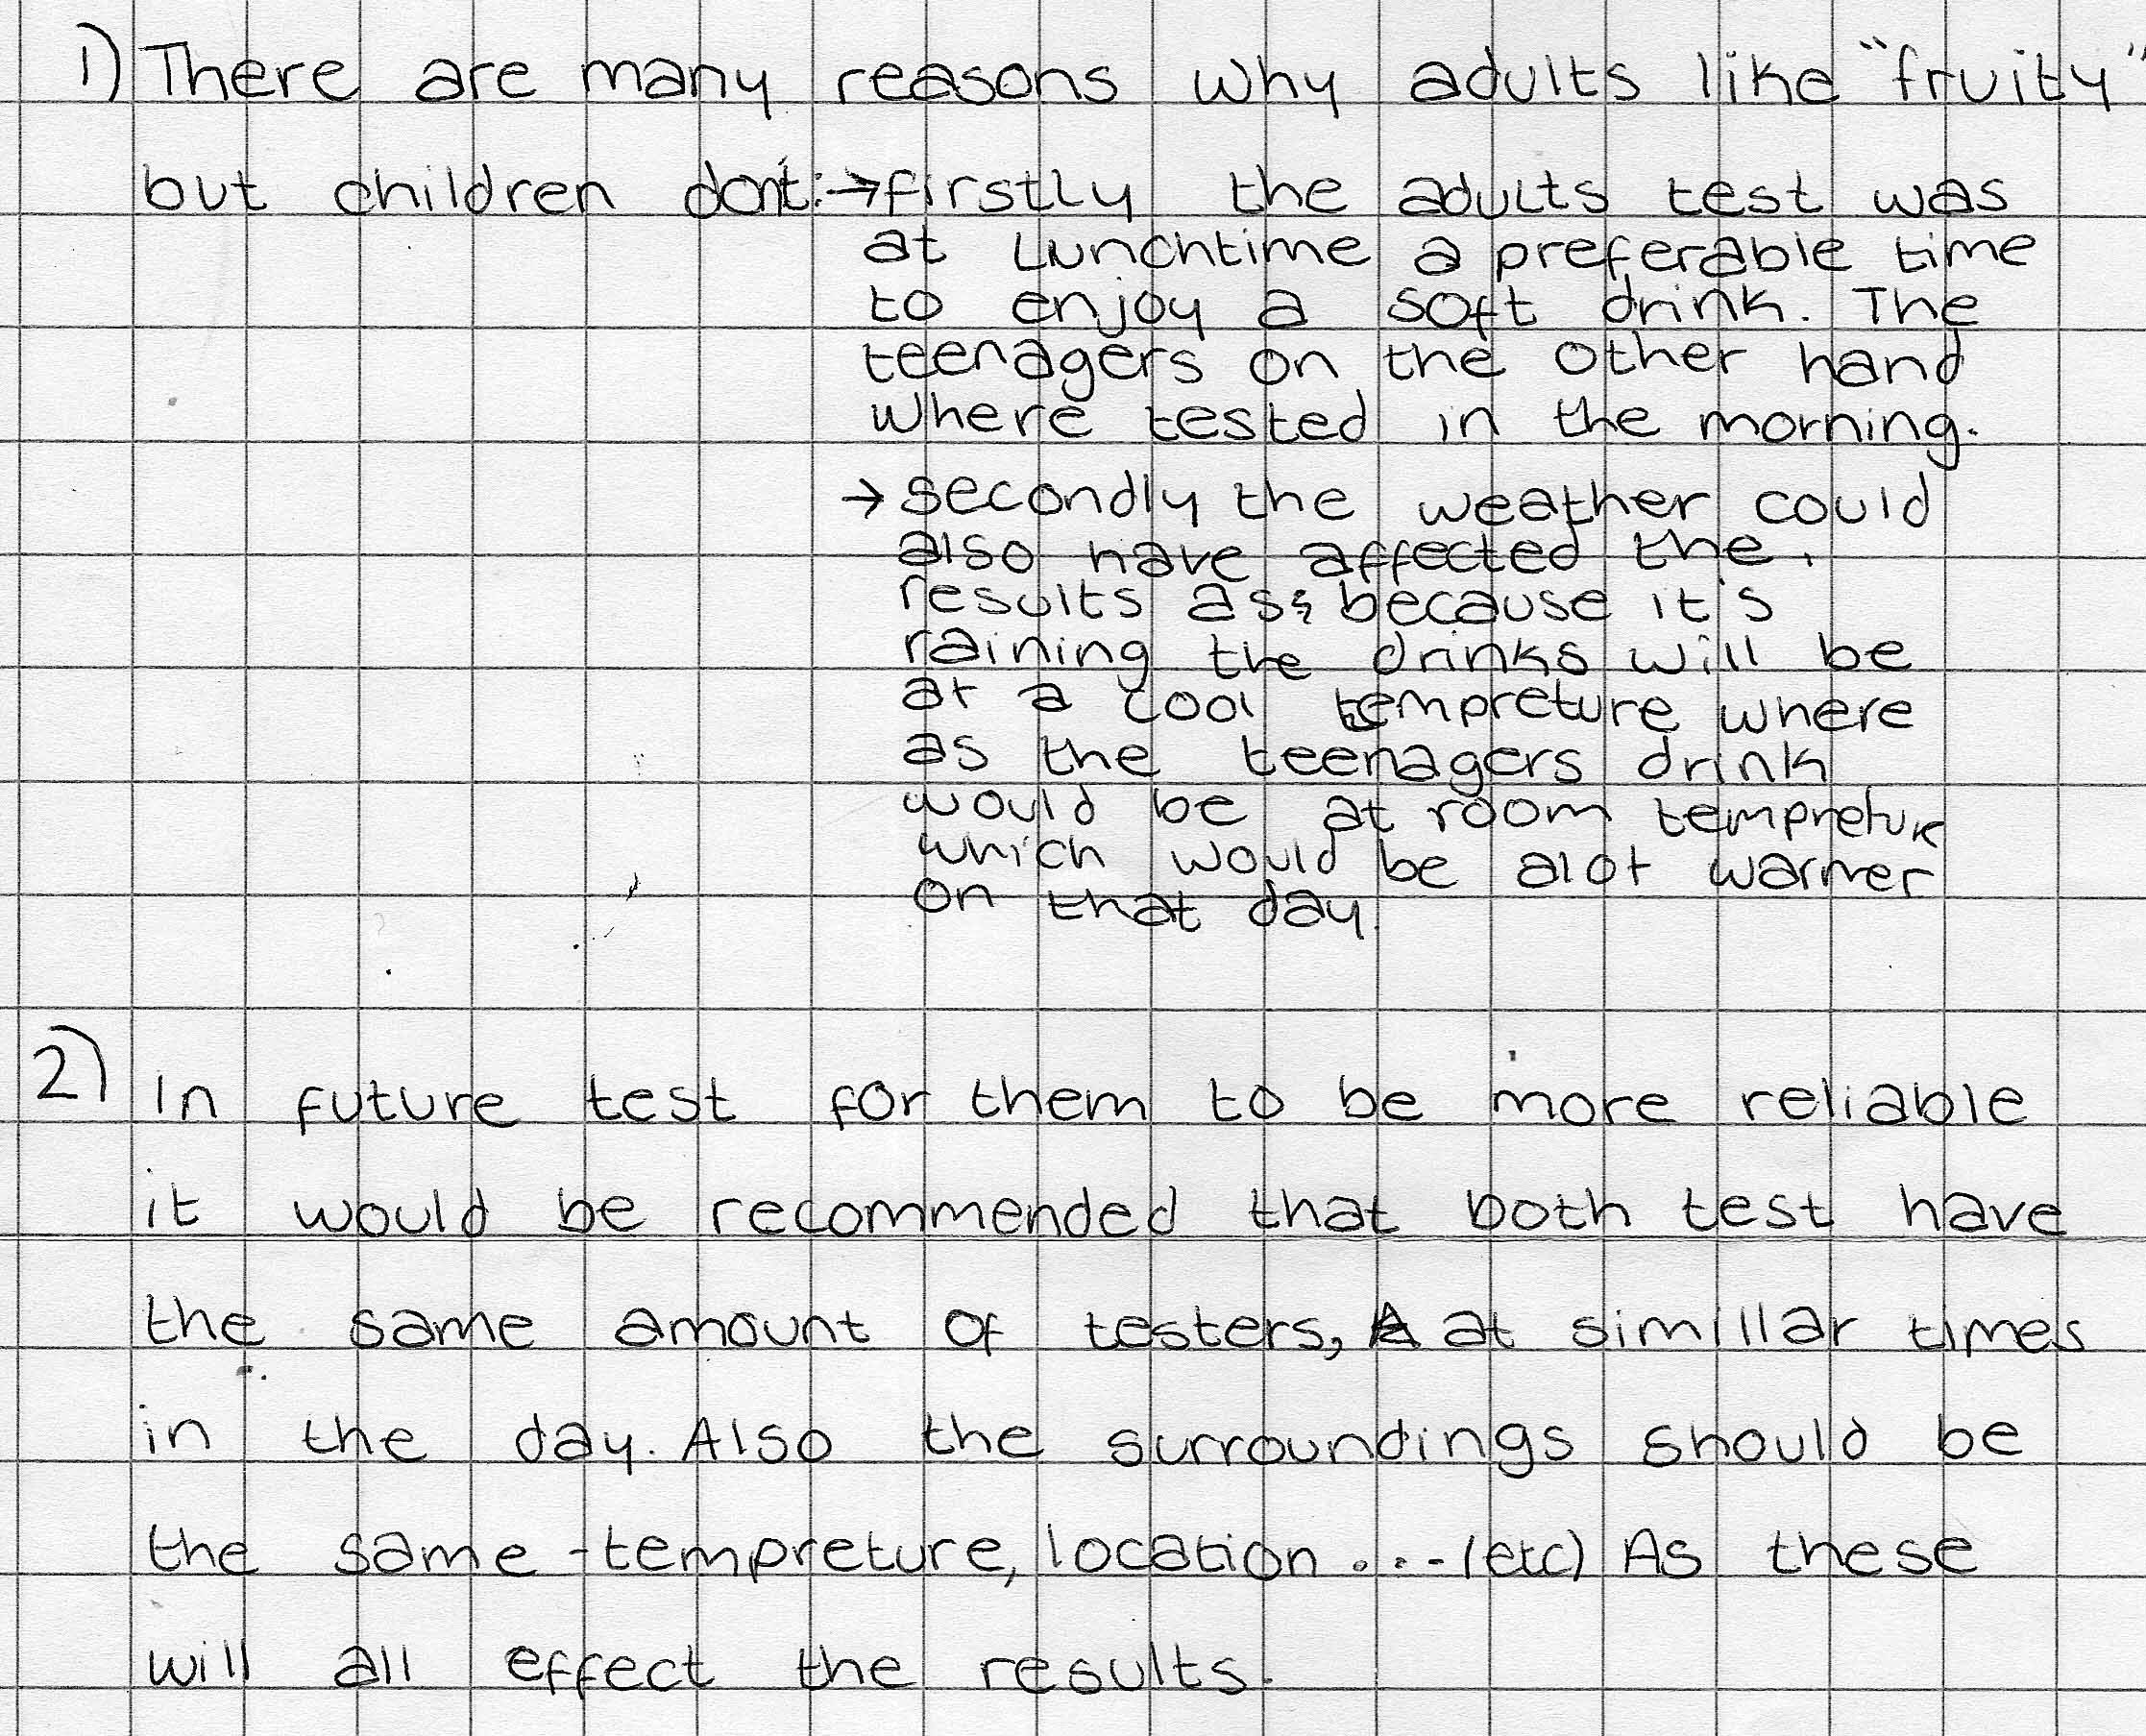 1) There are many reasons why adults like "fruity"
but children don't: → firstly the adults test was
at Lunchtime a preferable time
to enjoy a soft drink. The
teenagers on the other hand
where tested in the morning.
→ secondly the weather could
also have affected the
results as because it's
raining the drinks will be
at a cool tempreture where
as the teenagers drink
would be at room tempreture
which would be alot warmer
on that day.
2) In future test for them to be more reliable
it would be recommended that both test have
the same amount of testers, at simillar times
in the day. Also the surroundings should be
the same - tempreture, location ...- (etc) As these
will all effect the results.